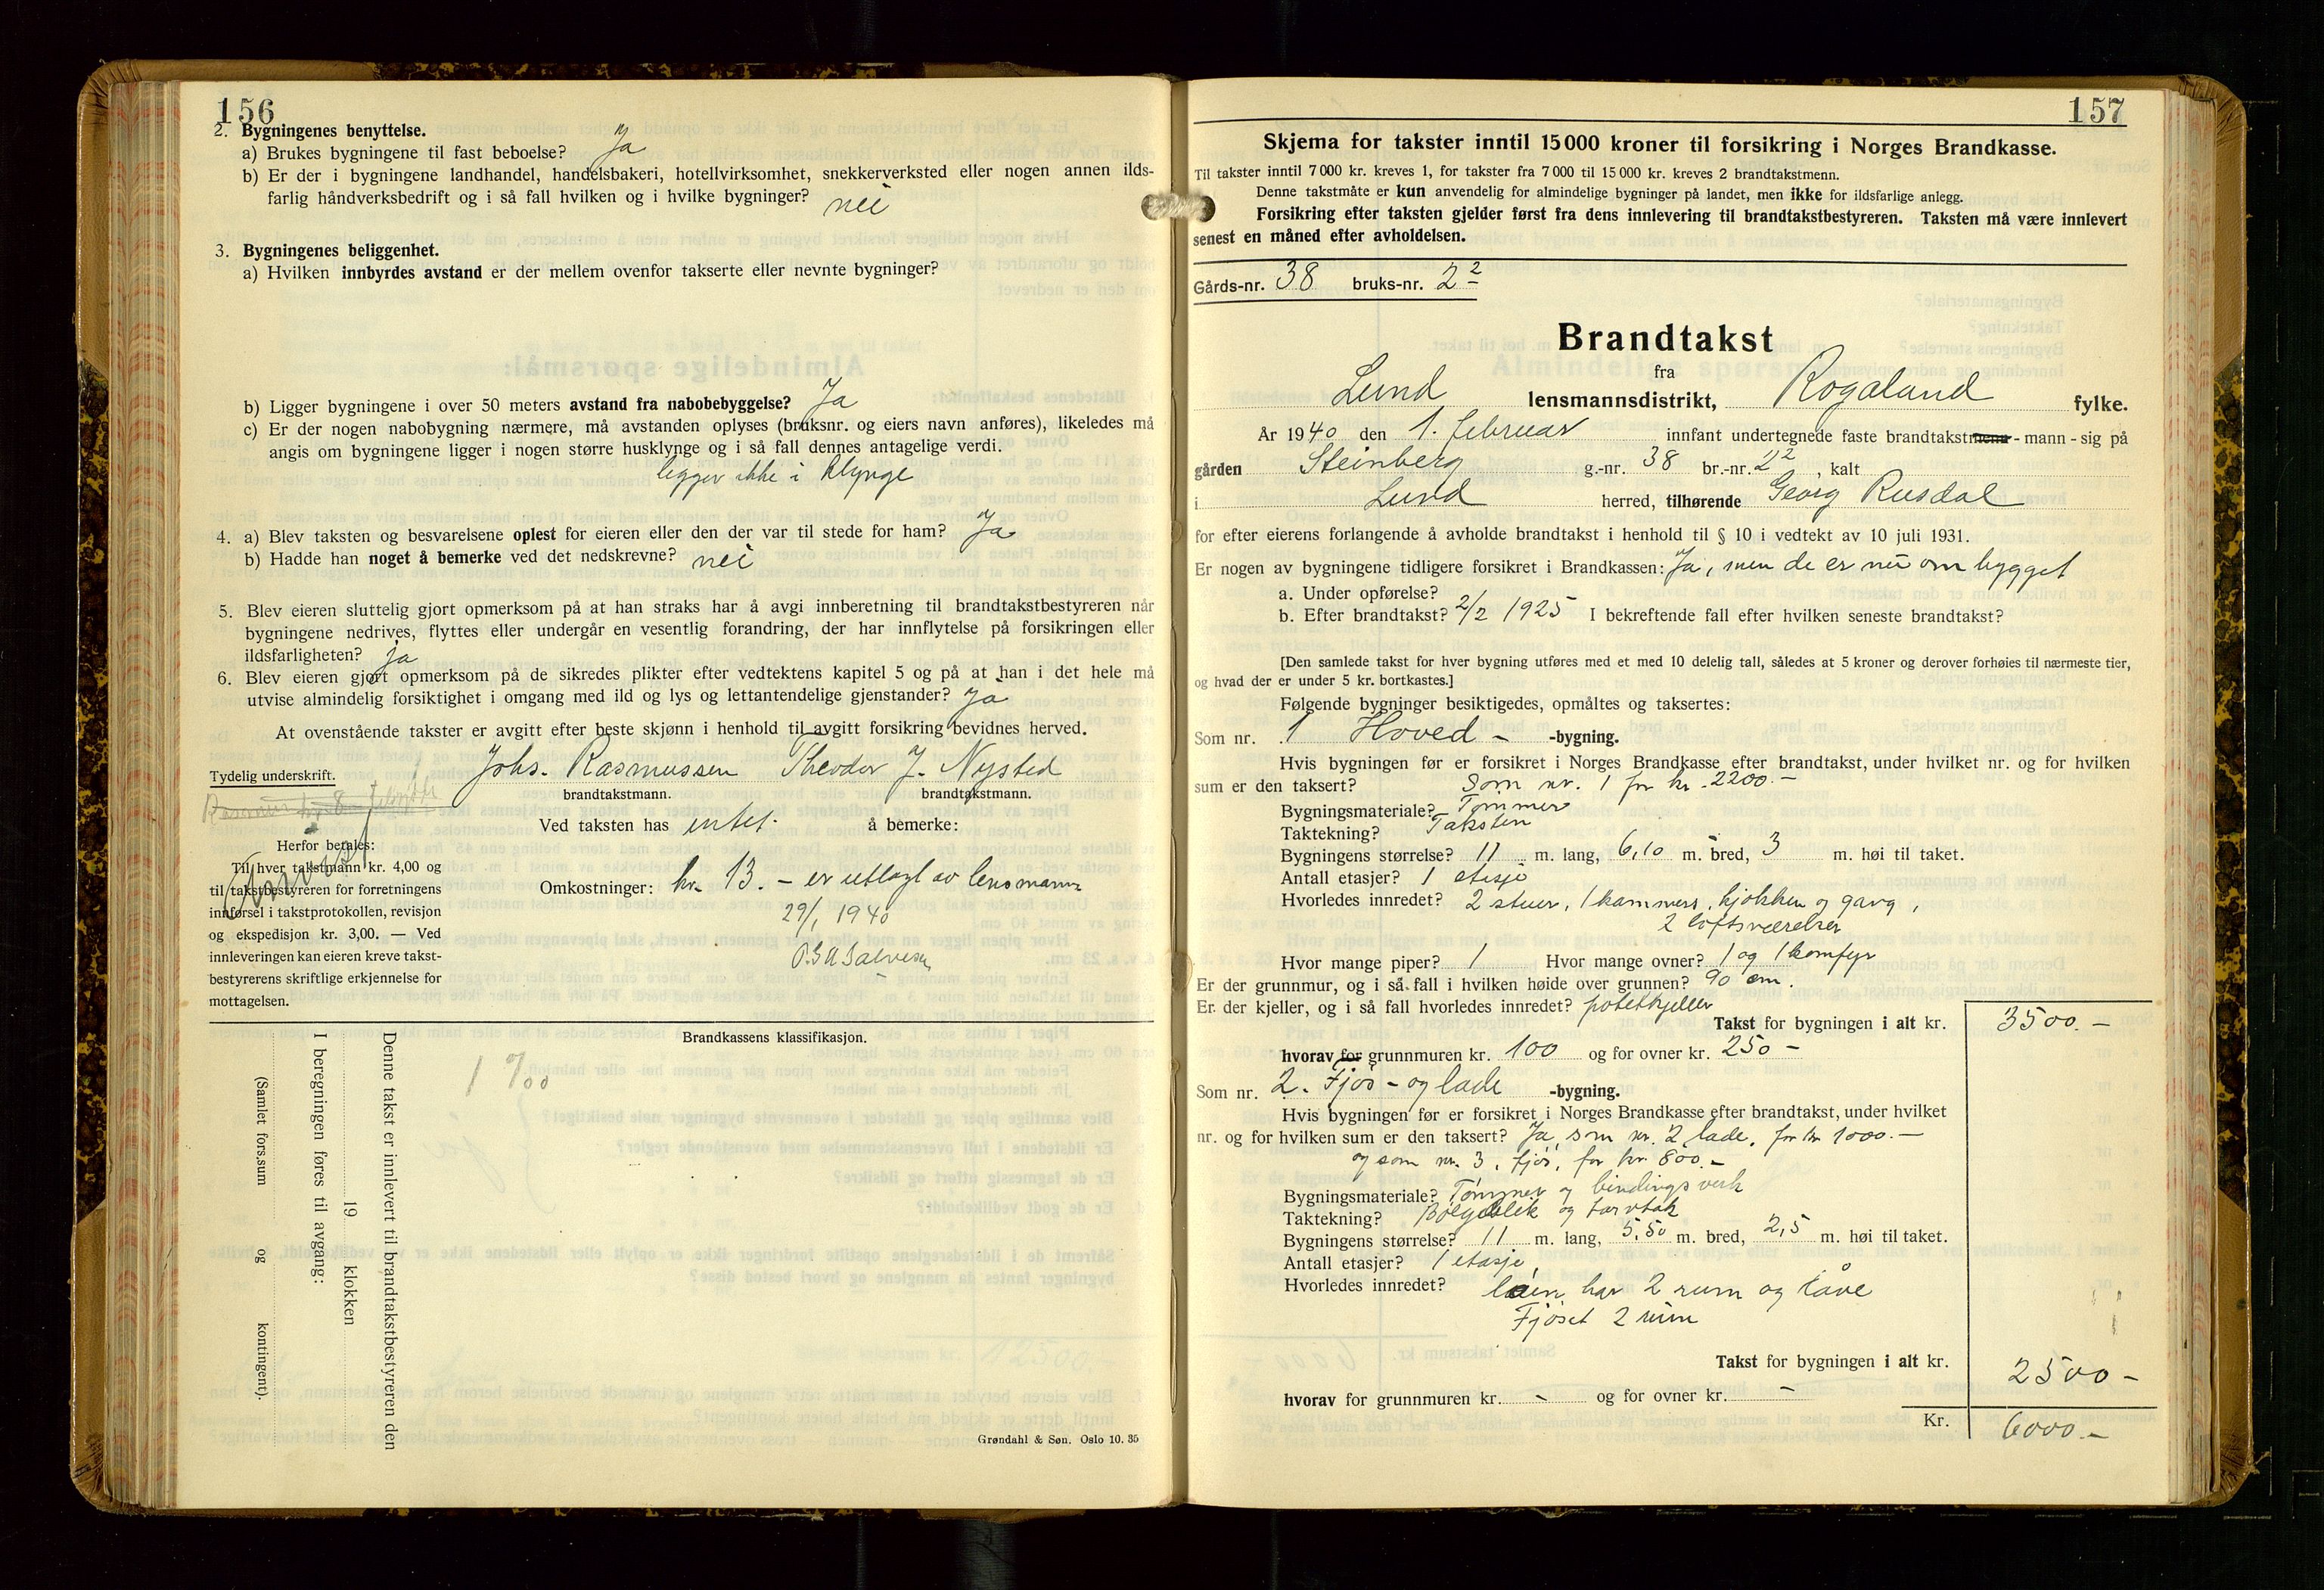 156
2. Bygningenes benyttelse.
a) Brukes bygningene til fast beboelse? Ja
b) Er der i bygningene landhandel, handelsbakeri, hotellvirksomhet, snekkerverksted eller nogen annen ilds-
farlig håndverksbedrift og i så fall hvilken og i hvilke bygninger? nei
3. Bygningenes beliggenhet.
a) Hvilken innbyrdes avstand er der mellem ovenfor takserte eller nevnte bygninger?
b) Ligger bygningene i over 50 meters avstand fra nabobebyggelse? Ja
c) Er der nogen nabobygning nærmere, må avstanden oplyses (bruksnr. og eiers navn anføres), likeledes må
angis om bygningene ligger i nogen større husklynge og i så fall dennes antagelige verdi.
ligger ikke i klynge
4. a) Blev taksten og besvarelsene oplest for eieren eller den der var til stede for ham? Ja
b) Hadde han noget å bemerke ved det nedskrevne? nei
5. Blev eieren sluttelig gjort opmerksom på at han straks har å avgi innberetning til brandtakstbestyreren når
bygningene nedrives, flyttes eller undergår en vesentlig forandring, der har innflytelse på forsikringen eller
ildsfarligheten? ja
6. Blev eieren gjort opmerksom på de sikredes plikter efter vedtektens kapitel 5 og på at han i det hele må
utvise almindelig forsiktighet i omgang med ild og lys og lettantendelige gjenstander? Ja
At ovenstående takster er avgitt efter beste skjønn i henhold til avgitt forsikring bevidnes herved.
Tydelig underskrift. Johs. Rasmussen Theodor J. Nysted
brandtakstmann. brandtakstmann.
Ved taksten has intet å bemerke:
Herfor betales:
Til hver takstmann kr. 4,00 og
til takstbestyreren for forretningens
innførsel i takstprotokollen, revisjon
og ekspedisjon kr. 3,00. — Ved
innleveringen kan eieren kreve takst-
bestyrerens skriftlige erkjennelse for
mottagelsen.
Omkostninger: kr. 13. - er utlagt av lensmann
29/1 1940
Brandkassens klassifikasjon.
1 ‰
Denne takst er innlevert til brandtakstbestyreren den
19 klokken
I beregningen føres til avgang:
(Samlet fors.sum og kontingent).
Grøndahl & Søn. Oslo 10. 35
157
Skjema for takster inntil 15000 kroner til forsikring i Norges Brandkasse.
Til takster inntil 7000 kr. kreves 1, for takster fra 7000 til 15000 kr. kreves 2 brandtakstmenn.
Denne takstmåte er kun anvendelig for almindelige bygninger på landet, men ikke for ildsfarlige anlegg.
Forsikring efter taksten gjelder først fra dens innlevering til brandtakstbestyreren. Taksten må være innlevert
senest en måned efter avholdelsen.
Gårds-nr. 38 bruks-nr. 2²
Brandtakst
fra
Lund lensmannsdistrikt, Rogaland fylke.
År 1940 den 1. februar innfant undertegnede faste brandtakstmenn - mann - sig på
gården Steinberg g.-nr. 38 br.-nr. 2², kalt
i Lund herred, tilhørende Georg Rusdal
for efter eierens forlangende å avholde brandtakst i henhold til § 10 i vedtekt av 10 juli 1931.
Er nogen av bygningene tidligere forsikret i Brandkassen: Ja, men de er nu ombygget
a. Under opførelse?
b. Efter brandtakst? 2/2 1925 I bekreftende fall efter hvilken seneste brandtakst?
[Den samlede takst for hver bygning utføres med et med 10 delelig tall, således at 5 kroner og derover forhøies til nærmeste tier,
og hvad der er under 5 kr. bortkastes.]
Følgende bygninger besiktigedes, opmåltes og taksertes:
Som nr. 1 Hoved- -bygning.
Hvis bygningen før er forsikret i Norges Brandkasse efter brandtakst, under hvilket nr. og for hvilken
sum er den taksert? Som nr. 1 for kr. 2200.-
Bygningsmateriale? Tømmer
Taktekning? Taksten
Bygningens størrelse? 11 m. lang, 6,10 m. bred, 3 m. høi til taket.
Antall etasjer? 1 etasje
Hvorledes innredet? 2 stuer, 1 kammers, kjøkken og gang,
2 loftsværelser
Hvor mange piper? 1 Hvor mange ovner? 1 og 1 komfyr
Er der grunnmur, og i så fall i hvilken høide over grunnen? 90 cm.
Er der kjeller, og i så fall hvorledes innredet? potetkjeller
Takst for bygningen i alt kr. 3500.-
hvorav for grunnmuren kr. 100 og for ovner kr. 250-
Som nr. 2. Fjøs- og lade -bygning.
Hvis bygningen før er forsikret i Norges Brandkasse efter brandtakst, under hvilket
nr. og for hvilken sum er den taksert? Ja, som nr. 2, lade, for kr 1000.-
og som nr. 3, fjøs, for kr. 800.-
Bygningsmateriale? Tømmer og bindingsverk
Taktekning? Bølgeblik og torvtak
Bygningens størrelse? 11 m. lang, 5,50 m. bred, 2,5 m. høi til taket.
Antall etasjer? 1 etasje,
Hvorledes innredet? løen har 2 rum og låve
Fjøset 2 rum
Takst for bygningen i alt kr. 2500-
hvorav for grunnmuren kr. - og for ovner kr. -
Kr. 6000.-